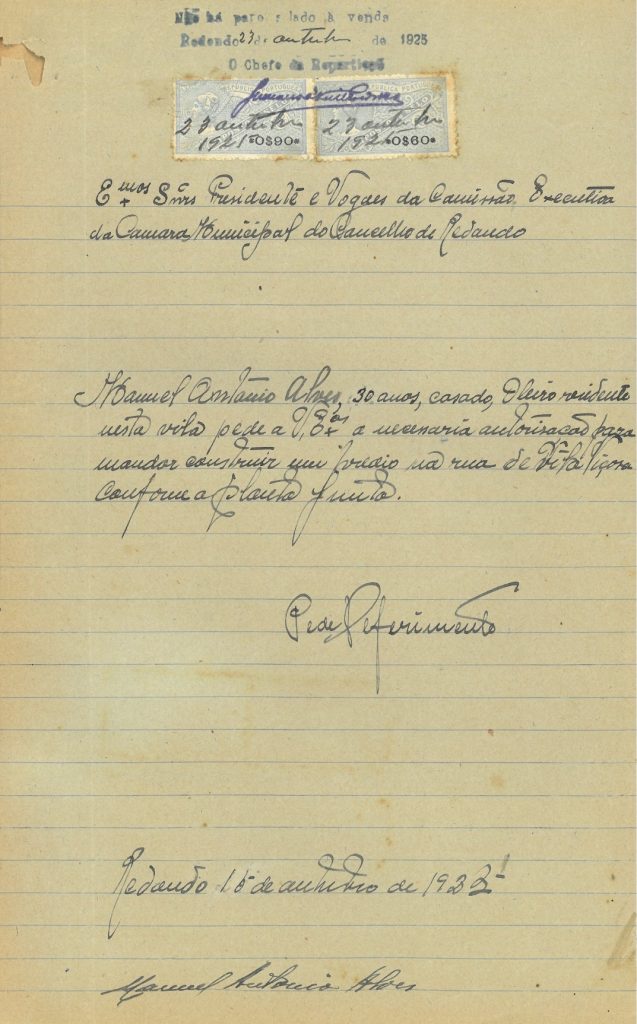 Não há papel selado à venda
Redondo 23 de outubro de 1925
O Chefe da Repartição
23 outubro 23 outubro
1925 0$90 1925 0$60
Emos Snrs Presidente e Vogaes da Comissão Executiva
da Camara Municipal do Concelho de Redondo
Manuel António Alves, 30 anos, casado, Oleiro residente
nesta vila pede a V. Exas a necessaria autorisacão para
mandar construir um predio na rua de Vila Viçosa
conforme a planta junta.
Pede Deferimento
Redondo 15 de outubro de 1925
Manuel António Alves